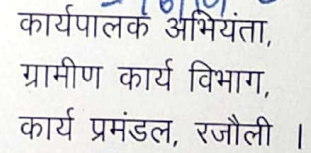 कार्यपालक अभियंता,
ग्रामीण कार्य विभाग,
कार्य प्रमंडल, रजौली ।